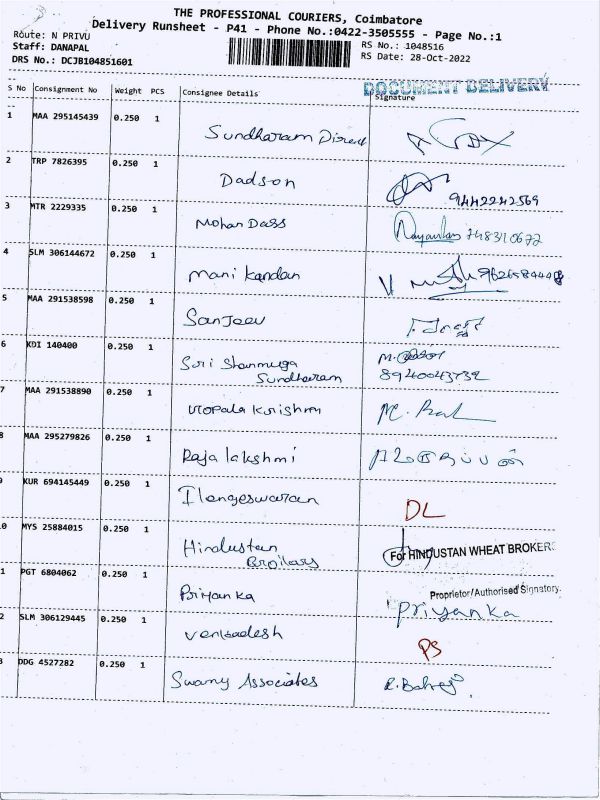 THE PROFESSIONAL COURIERS, Coimbatore
Delivery Runsheet - P41 - Phone No.:0422-3505555 - Page No.:1
Route: N PRIVU
RS No.: 1048516
Staff: DANAPAL
RS Date: 28-Oct-2022
DRS No.: DCJB104851601
DOCUMENT DELIVERY
S No Consignment No Weight PCS Consignee Details Signature
1 MAA 295145439 0.250 1
Sundharam Direct
2 TRP 7826395 0.250 1
Dadson
9442242569
3 MTR 2229335 0.250 1
Mohan Dass
7483110672
4 SLM 306144672 0.250 1
Mani kandan
5 MAA 291538598 0.250 1
Sanjeev
6 KDI 140400 0.250 1
Suri Shanmuga
Sundharam
8940043732
7 MAA 291538890 0.250 1
Gopala Krishnn
8 MAA 295279826 0.250 1
Rajalakshmi
9 KUR 694145449 0.250 1
Ilangeswaran
DL
0 MYS 25884015 0.250 1
Hindustan
Broilars
For HINDUSTAN WHEAT BROKER
1 PGT 6804062 0.250 1
Proprietor/Authorised Signatory.
Priyanka
Priyanka
2 SLM 306129445 0.250 1
Venkadesh
PS
3 DDG 4527282 0.250 1
Swamy Associates